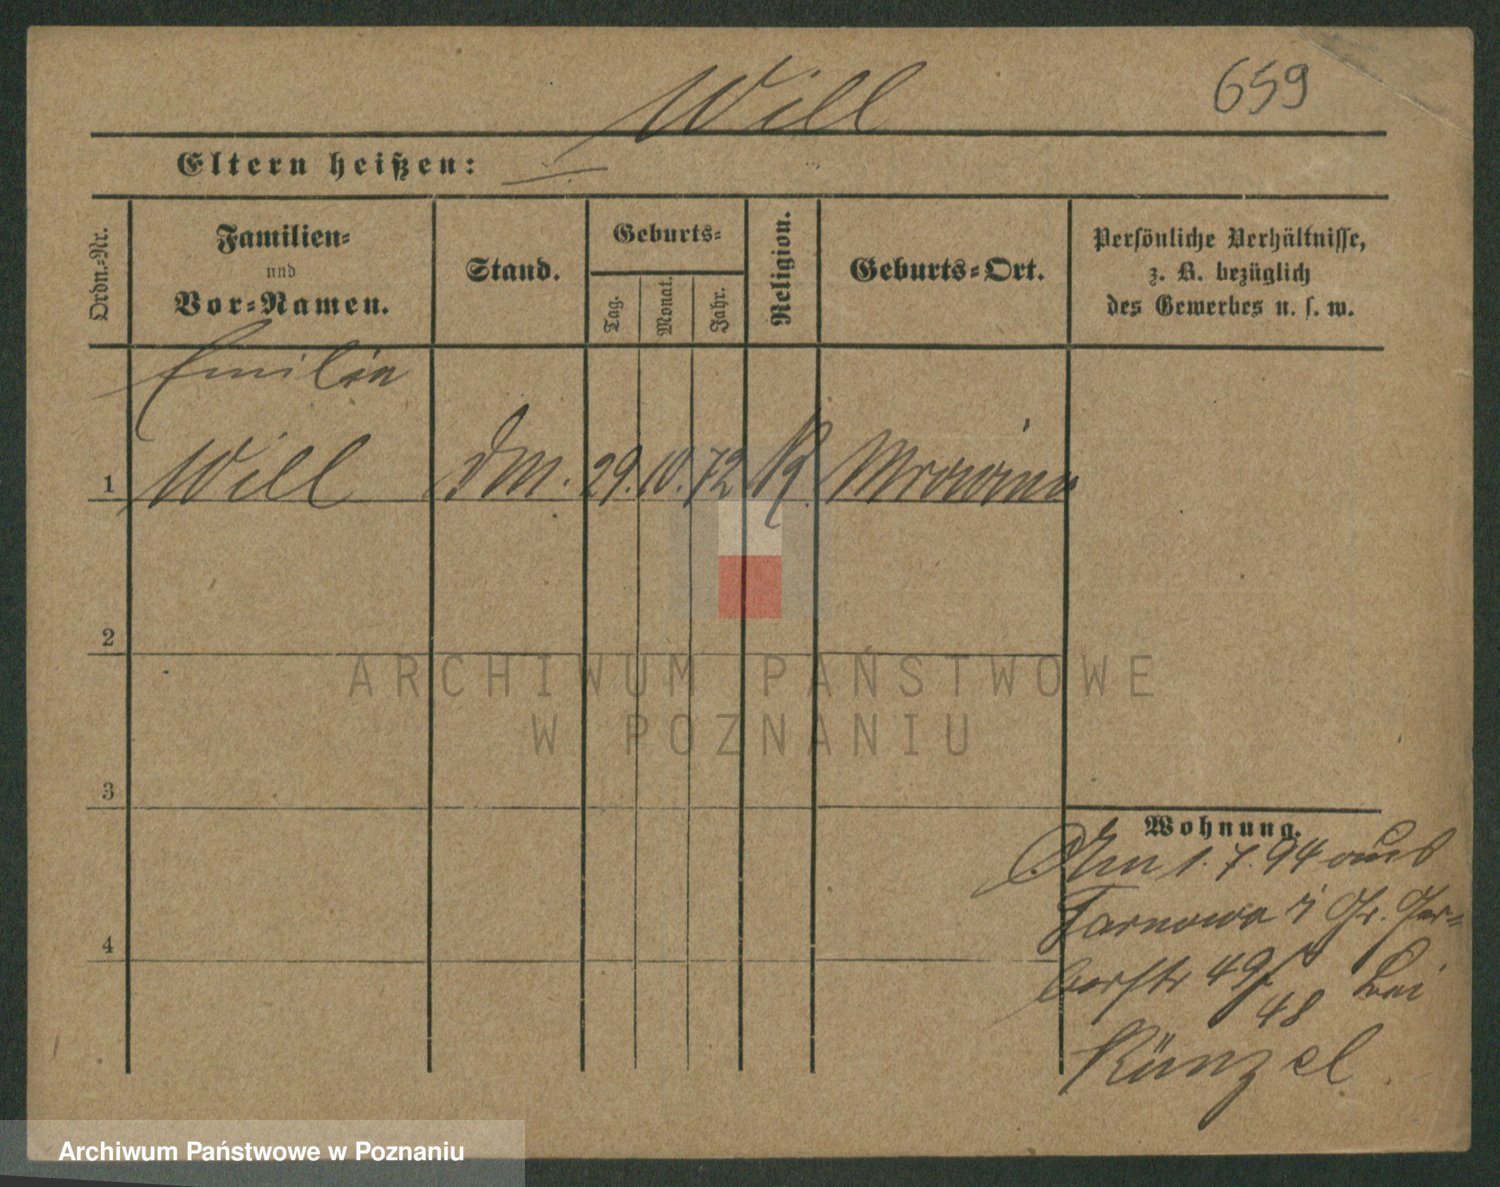 Will
659
Eltern heißen:
Ordn.-Nr.
Familien-
und
Vor-Namen.
Stand.
Geburts-
Tag.
Monat.
Jahr.
Religion.
Geburts-Ort.
Persönliche Verhältnisse,
z. B. bezüglich
des Gewerbes u. s. w.
Emilie
1 Will DM. 29. 10. 72 K. Mrowino
2
ARCHIWUM PAŃSTWOWE
W POZNANIU
3
Wohnung.
Am 1.7.94 aus
Tarnowo i Gr. Ger-
berstr 49/
48 bei
Künzel.
4
Archiwum Państwowe w Poznaniu